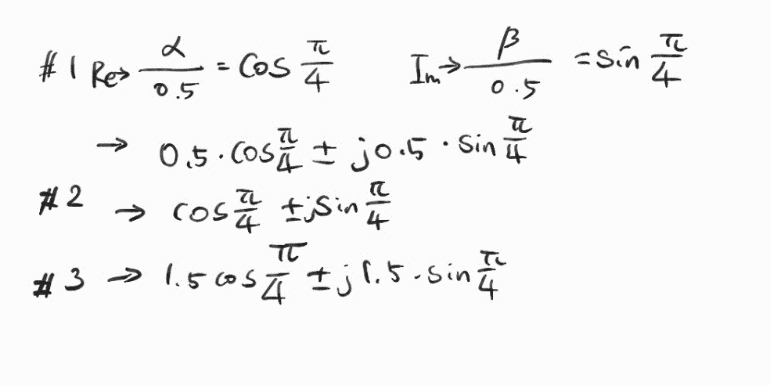 #1 Re→ α/0.5 = cos π/4   Im→ β/0.5 = sin π/4
→ 0.5·cos π/4 ± j0.5·sin π/4
#2 → cos π/4 ±jsin π/4
#3 → 1.5 cos π/4 ±j1.5·sin π/4